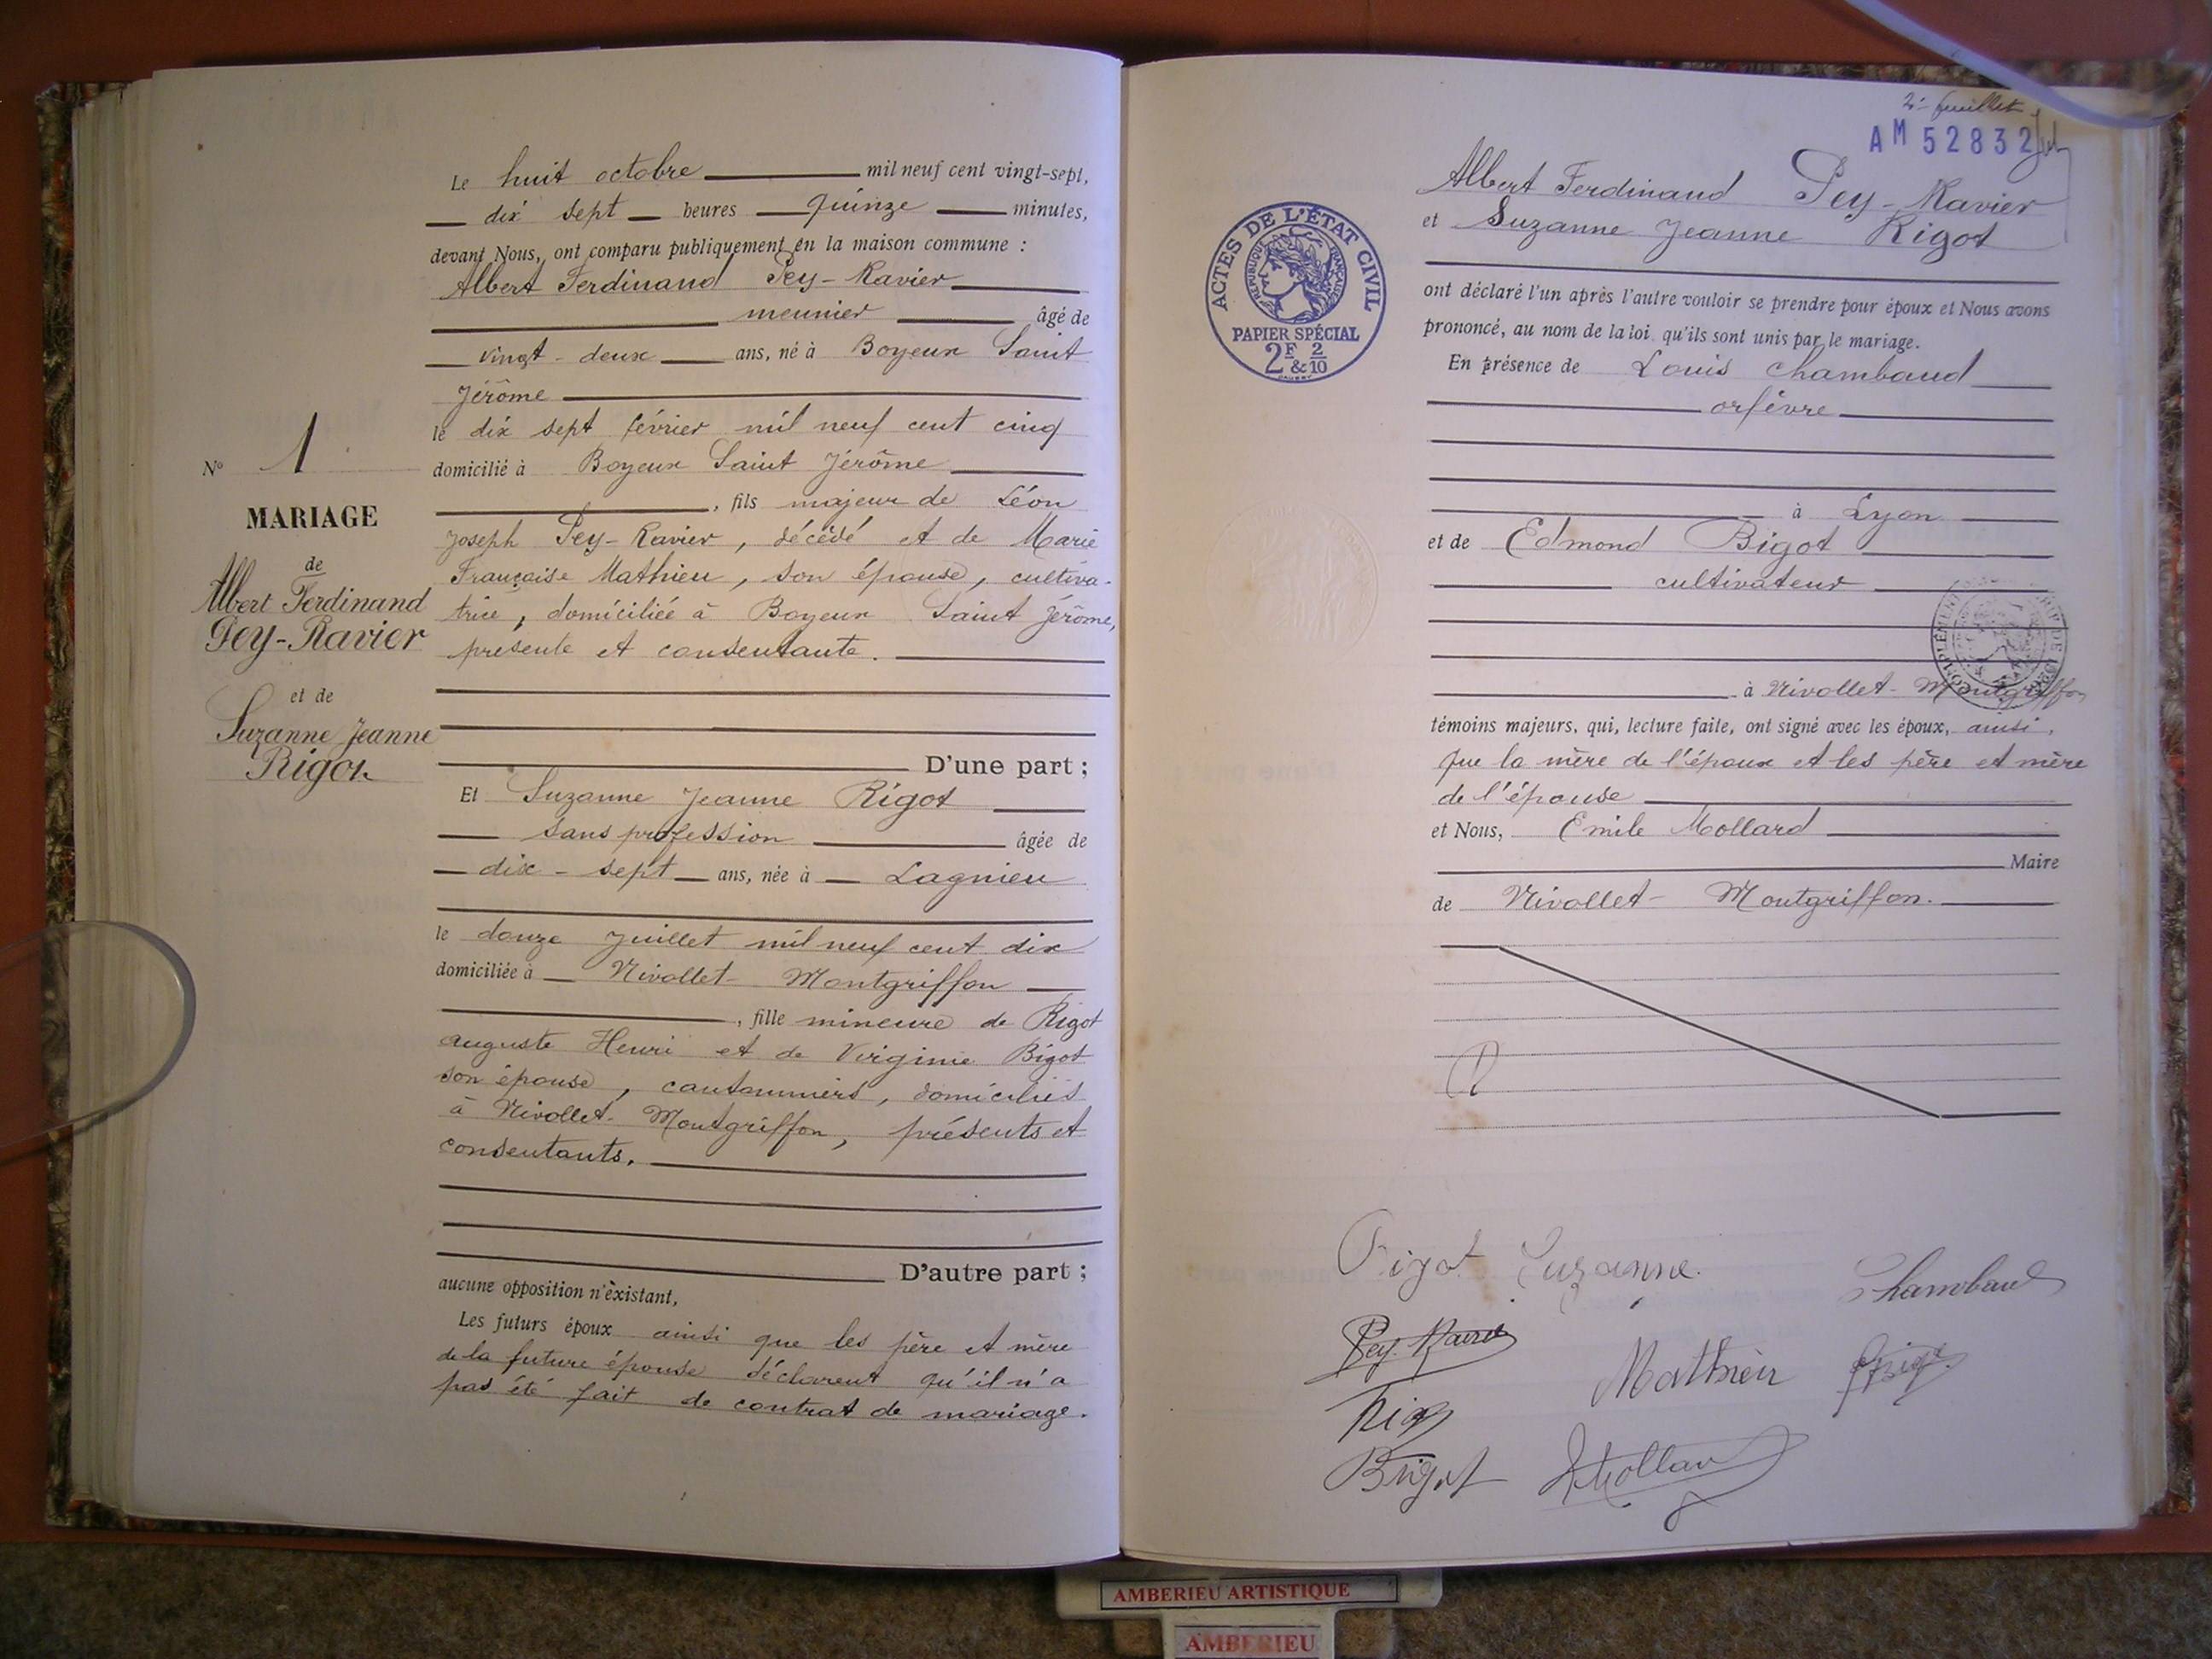 Le huit octobre mil neuf cent vingt-sept,
dix sept heures quinze minutes,
devant Nous, ont comparu publiquement en la maison commune :
Albert Ferdinand Pey-Ravier
meunier âgé de
vingt-deux ans, né à Boyeux Saint
Jérôme
le dix sept février mil neuf cent cinq
domicilié à Boyeux Saint Jérôme
, fils majeur de Léon
Joseph Pey-Ravier, décédé et de Marie
Française Mathieu, son épouse, cultiva-
trice, domiciliée à Boyeux Saint Jérôme,
présente et consentante.
D'une part ;
Et Suzanne Jeanne Rigot
sans profession âgée de
dix-sept ans, née à Lagnieu
le douze Juillet mil neuf cent dix
domiciliée à Nivollet-Montgriffon
, fille mineure de Rigot
Auguste Henri et de Virginie Bigot
son épouse, cantonniers, domiciliés
à Nivollet-Montgriffon, présents et
consentants.
D'autre part ;
aucune opposition n'existant,
Les futurs époux ainsi que les père et mère
de la future épouse déclarent qu'il n'a
pas été fait de contrat de mariage.
N° 1
MARIAGE
de
Albert Ferdinand
Pey-Ravier
et de
Suzanne Jeanne
Rigot
2e feuillet
AM 52832
Albert Ferdinand Pey-Ravier
et Suzanne Jeanne Rigot
ACTES DE L'ÉTAT CIVIL
RÉPUBLIQUE FRANÇAISE
PAPIER SPÉCIAL
2F & 2/10
ont déclaré l'un après l'autre vouloir se prendre pour époux et Nous avons
prononcé, au nom de la loi, qu'ils sont unis par le mariage.
En présence de Louis Chambaud
orfèvre
à Lyon
et de Edmond Bigot
cultivateur
à Nivollet-Montgriffon
témoins majeurs, qui, lecture faite, ont signé avec les époux, ainsi
que la mère de l'époux et les père et mère
de l'épouse
et Nous, Emile Mollard
Maire
de Nivollet-Montgriffon.
Rigot Suzanne
Chambaud
Pey-Ravier
Mathieu
Bigot
Mollard
AMBERIEU ARTISTIQUE
AMBERIEU